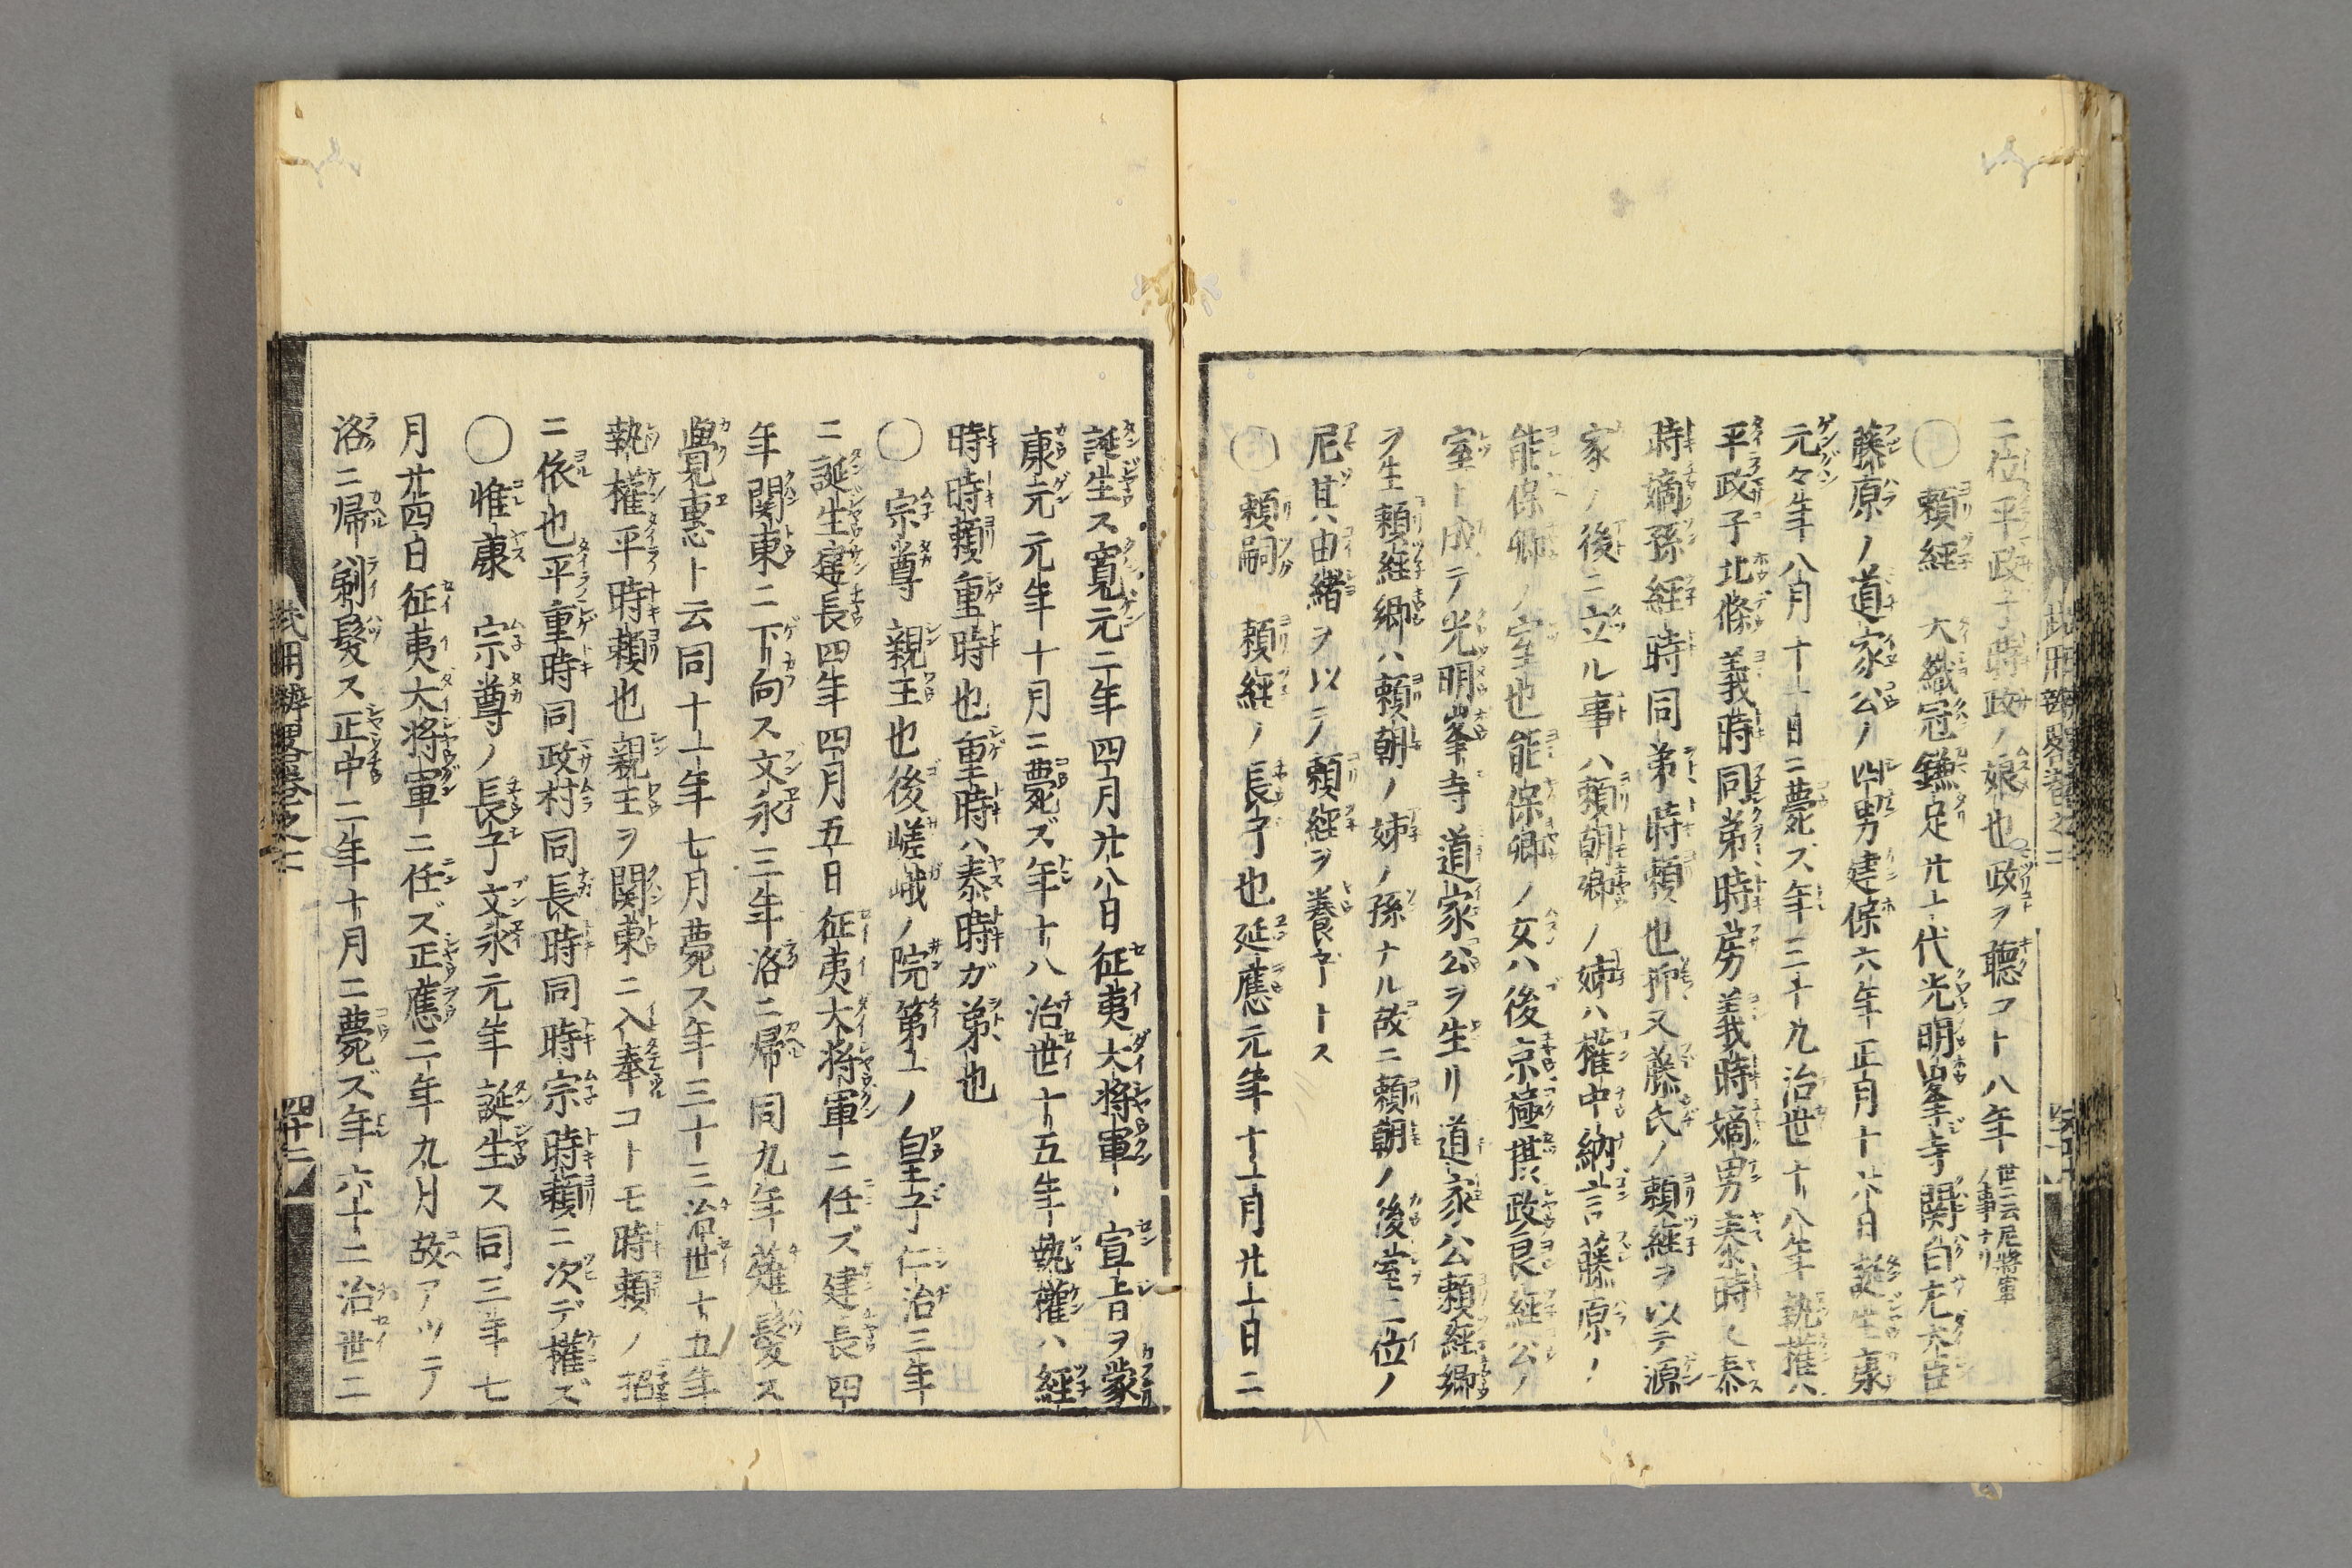 二位平政子時政ノ娘也政ヲ聴コト八年世ニ云尼將軍ノ事ナリ
〇頼経 大織冠鎌足廿一代光明峯寺関白左大臣
藤原ノ道家公ノ四男建保六年正月十六日誕生康
元々年八月十一日ニ薨ズ年三十九治世十八年執権ハ
平政子北條義時同弟時房義時嫡男泰時又泰
時嫡孫経時同弟時頼也抑又藤氏ノ頼経ヲ以テ源
家ノ後ニ立ル事ハ頼朝卿ノ姉ハ権中納言藤原ノ
能保卿ノ室也能保卿ノ女ハ後京極摂政良経公ノ
室ト成テ光明峯寺道家公ヲ生リ道家公頼経卿
ヲ生頼経卿ハ頼朝ノ姉ノ孫ナル故ニ頼朝ノ後室二位ノ
尼其由緒ヲ以テ頼経ヲ養子トス
〇頼嗣 頼経ノ長子也延應元年十一月廿一日ニ
誕生ス寛元二年四月廿八日征夷大将軍ノ宣旨ヲ蒙
康元元年十月ニ薨ズ年十八治世十五年執權ハ経
時時頼重時也重時ハ泰時ガ弟也
〇宗尊 親王也後嵯峨ノ院第一ノ皇子仁治三年
ニ誕生建長四年四月五日征夷大将軍ニ任ズ建長四
年関東ニ下向ス文永三年洛ニ帰同九年薙髪ス
覺惠ト云同十一年七月薨ス年三十三治世十五年
執權平時頼也親王ヲ関東ニ入奉コトモ時頼ノ招
ニ依也平重時同政村同長時同時宗時頼ニ次デ權ス
〇惟康 宗尊ノ長子文永元年誕生ス同三年七
月廿四日征夷大将軍ニ任ズ正應二年九月故アツテ
洛ニ帰剃髪ス正中二年十月ニ薨ズ年六十二治世二
武用辨畧巻之二
四十二